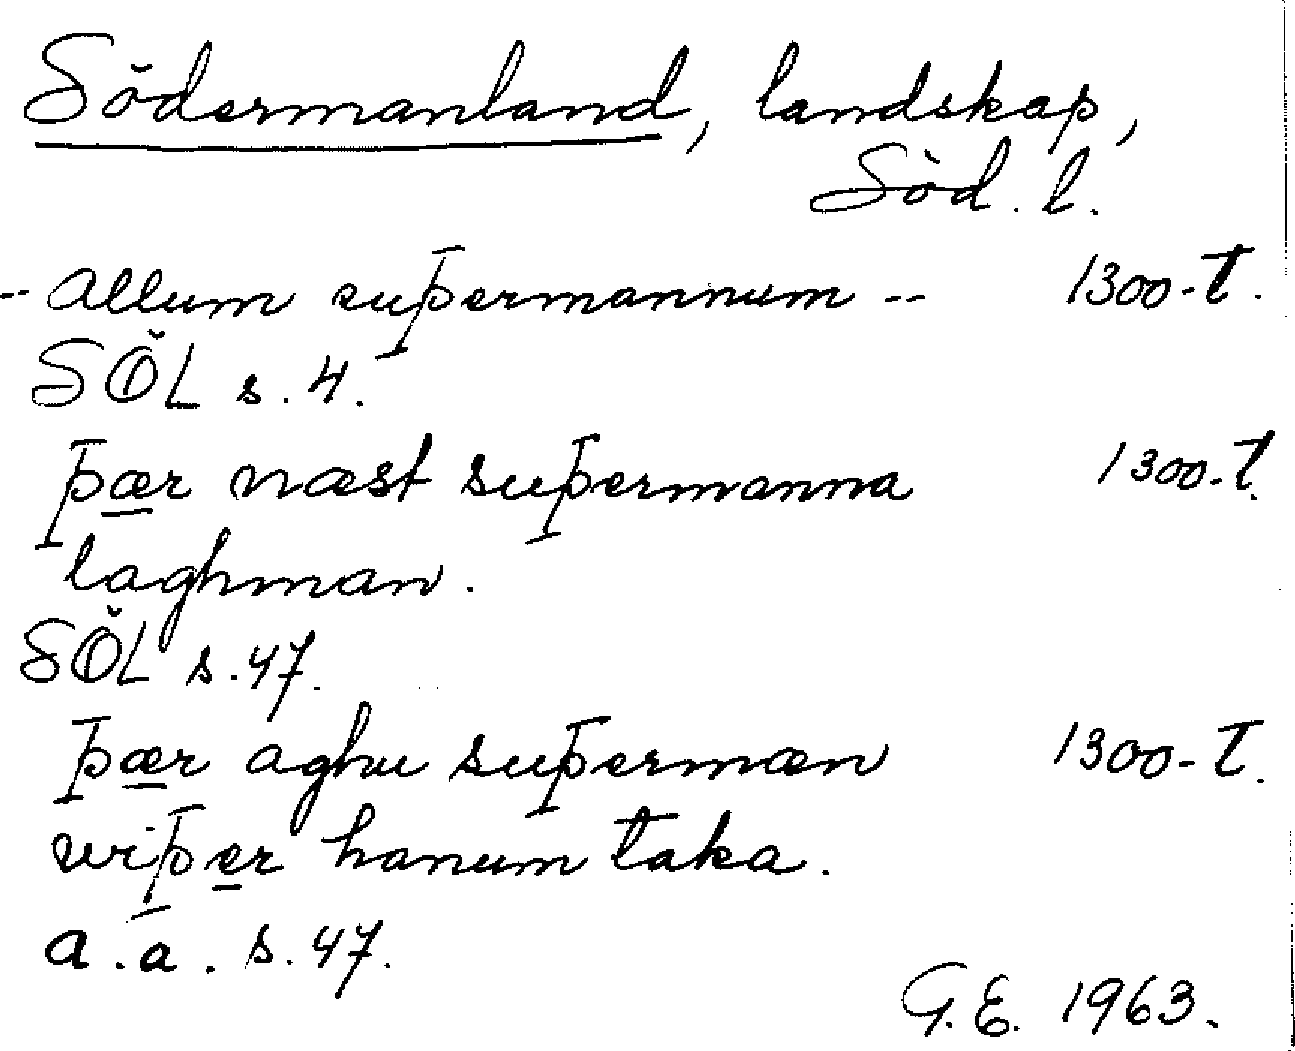 Södermanland, landskap,
Söd. l.
-- allum suþermannum -- 1300-t.
SÖL s. 4.
þær næst suþermanna 1300-t.
laghman.
SÖL s. 47.
þær aghu suþermæn 1300-t.
wiþer hanum taka.
a.a. s. 47.
G.E. 1963.